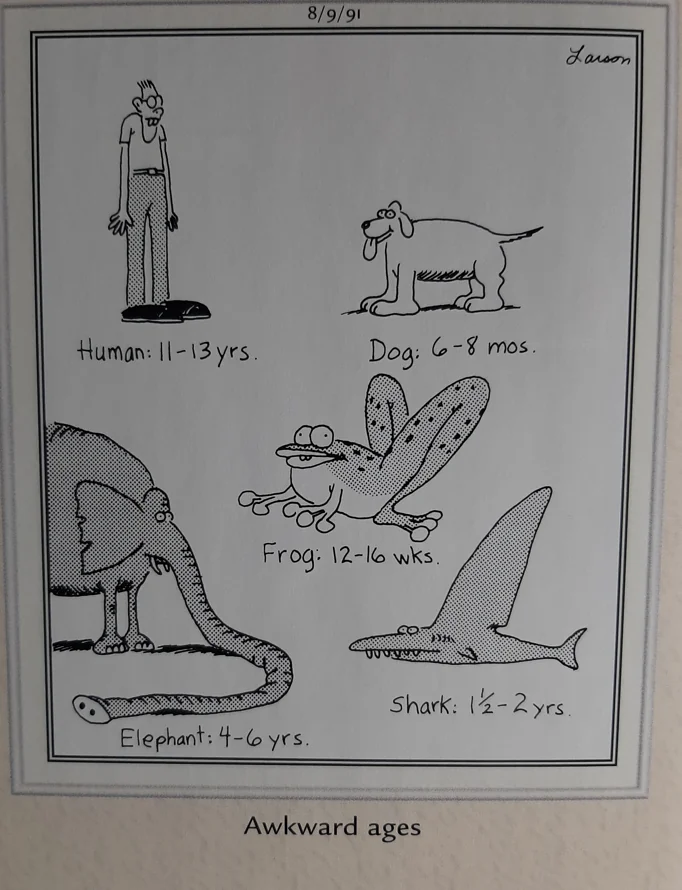 8/9/91
Larson
Human: 11-13 yrs.
Dog: 6-8 mos.
Frog: 12-16 wks.
Shark: 1½-2 yrs.
Elephant: 4-6 yrs.
Awkward ages